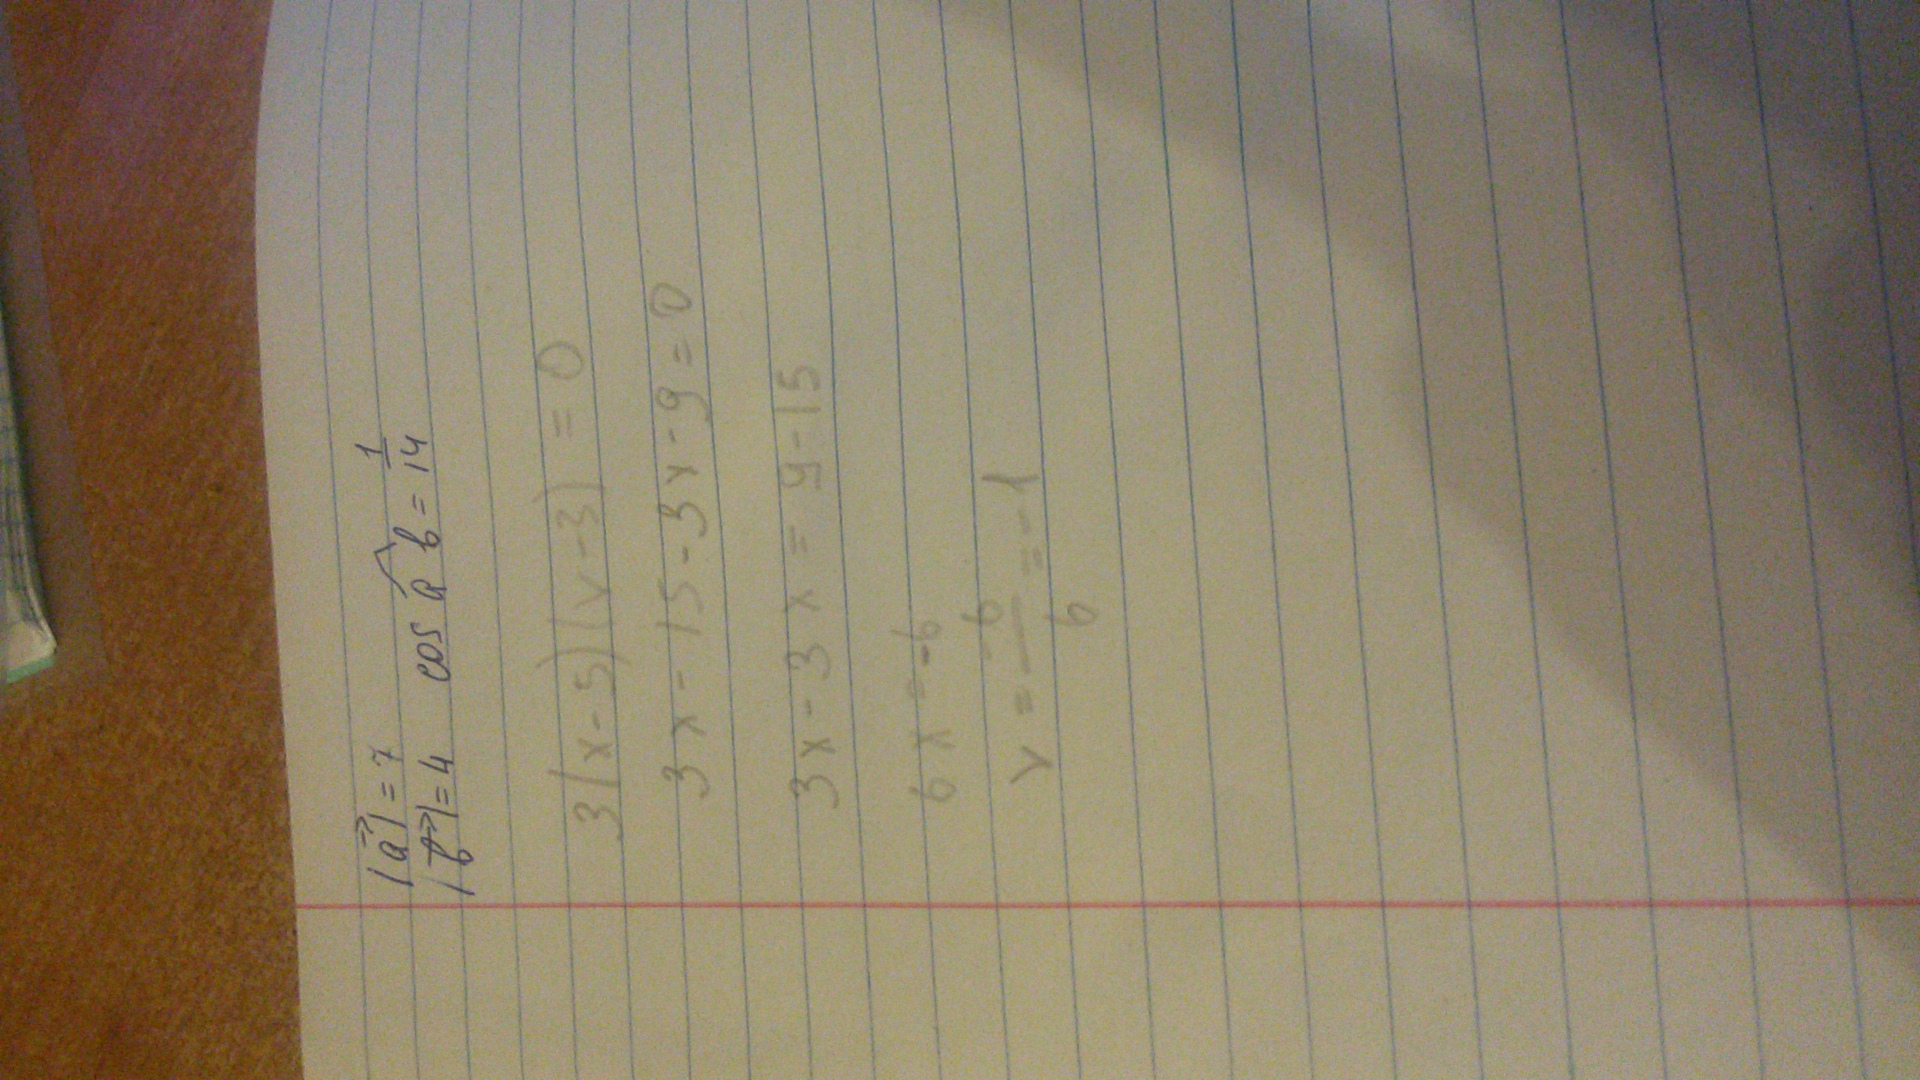 |a⃗| = 7
|b⃗| = 4 cos a^b = 1/14
3(x-5)(x-3) = 0
3x - 15 - 3x - 9 = 0
3x - 3x = 9 - 15
6x = -6
x = -6/6 = -1